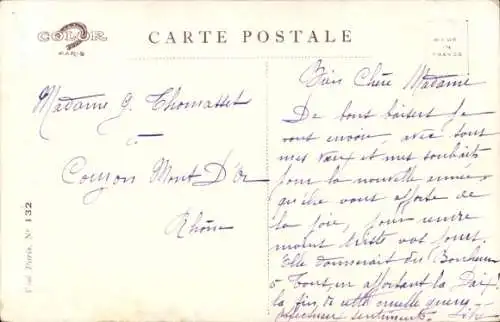 COLOR
PARIS
CARTE POSTALE
MADE
IN
FRANCE
Madame G. Thomasset
à
Couzon Mont D'Or
Rhône
Visé Paris. N° 132
Bien Chère Madame
De bons baisers je
vous envoie, avec tous
mes vœux et mes souhaits
pour la nouvelle année
qu'elle vous apporte de
la joie, pour rendre
moins triste vos jours.
Elle donnerait du Bonheur
à Tous, en apportant la Paix!
la fin de cette cruelle guerre
sentiments